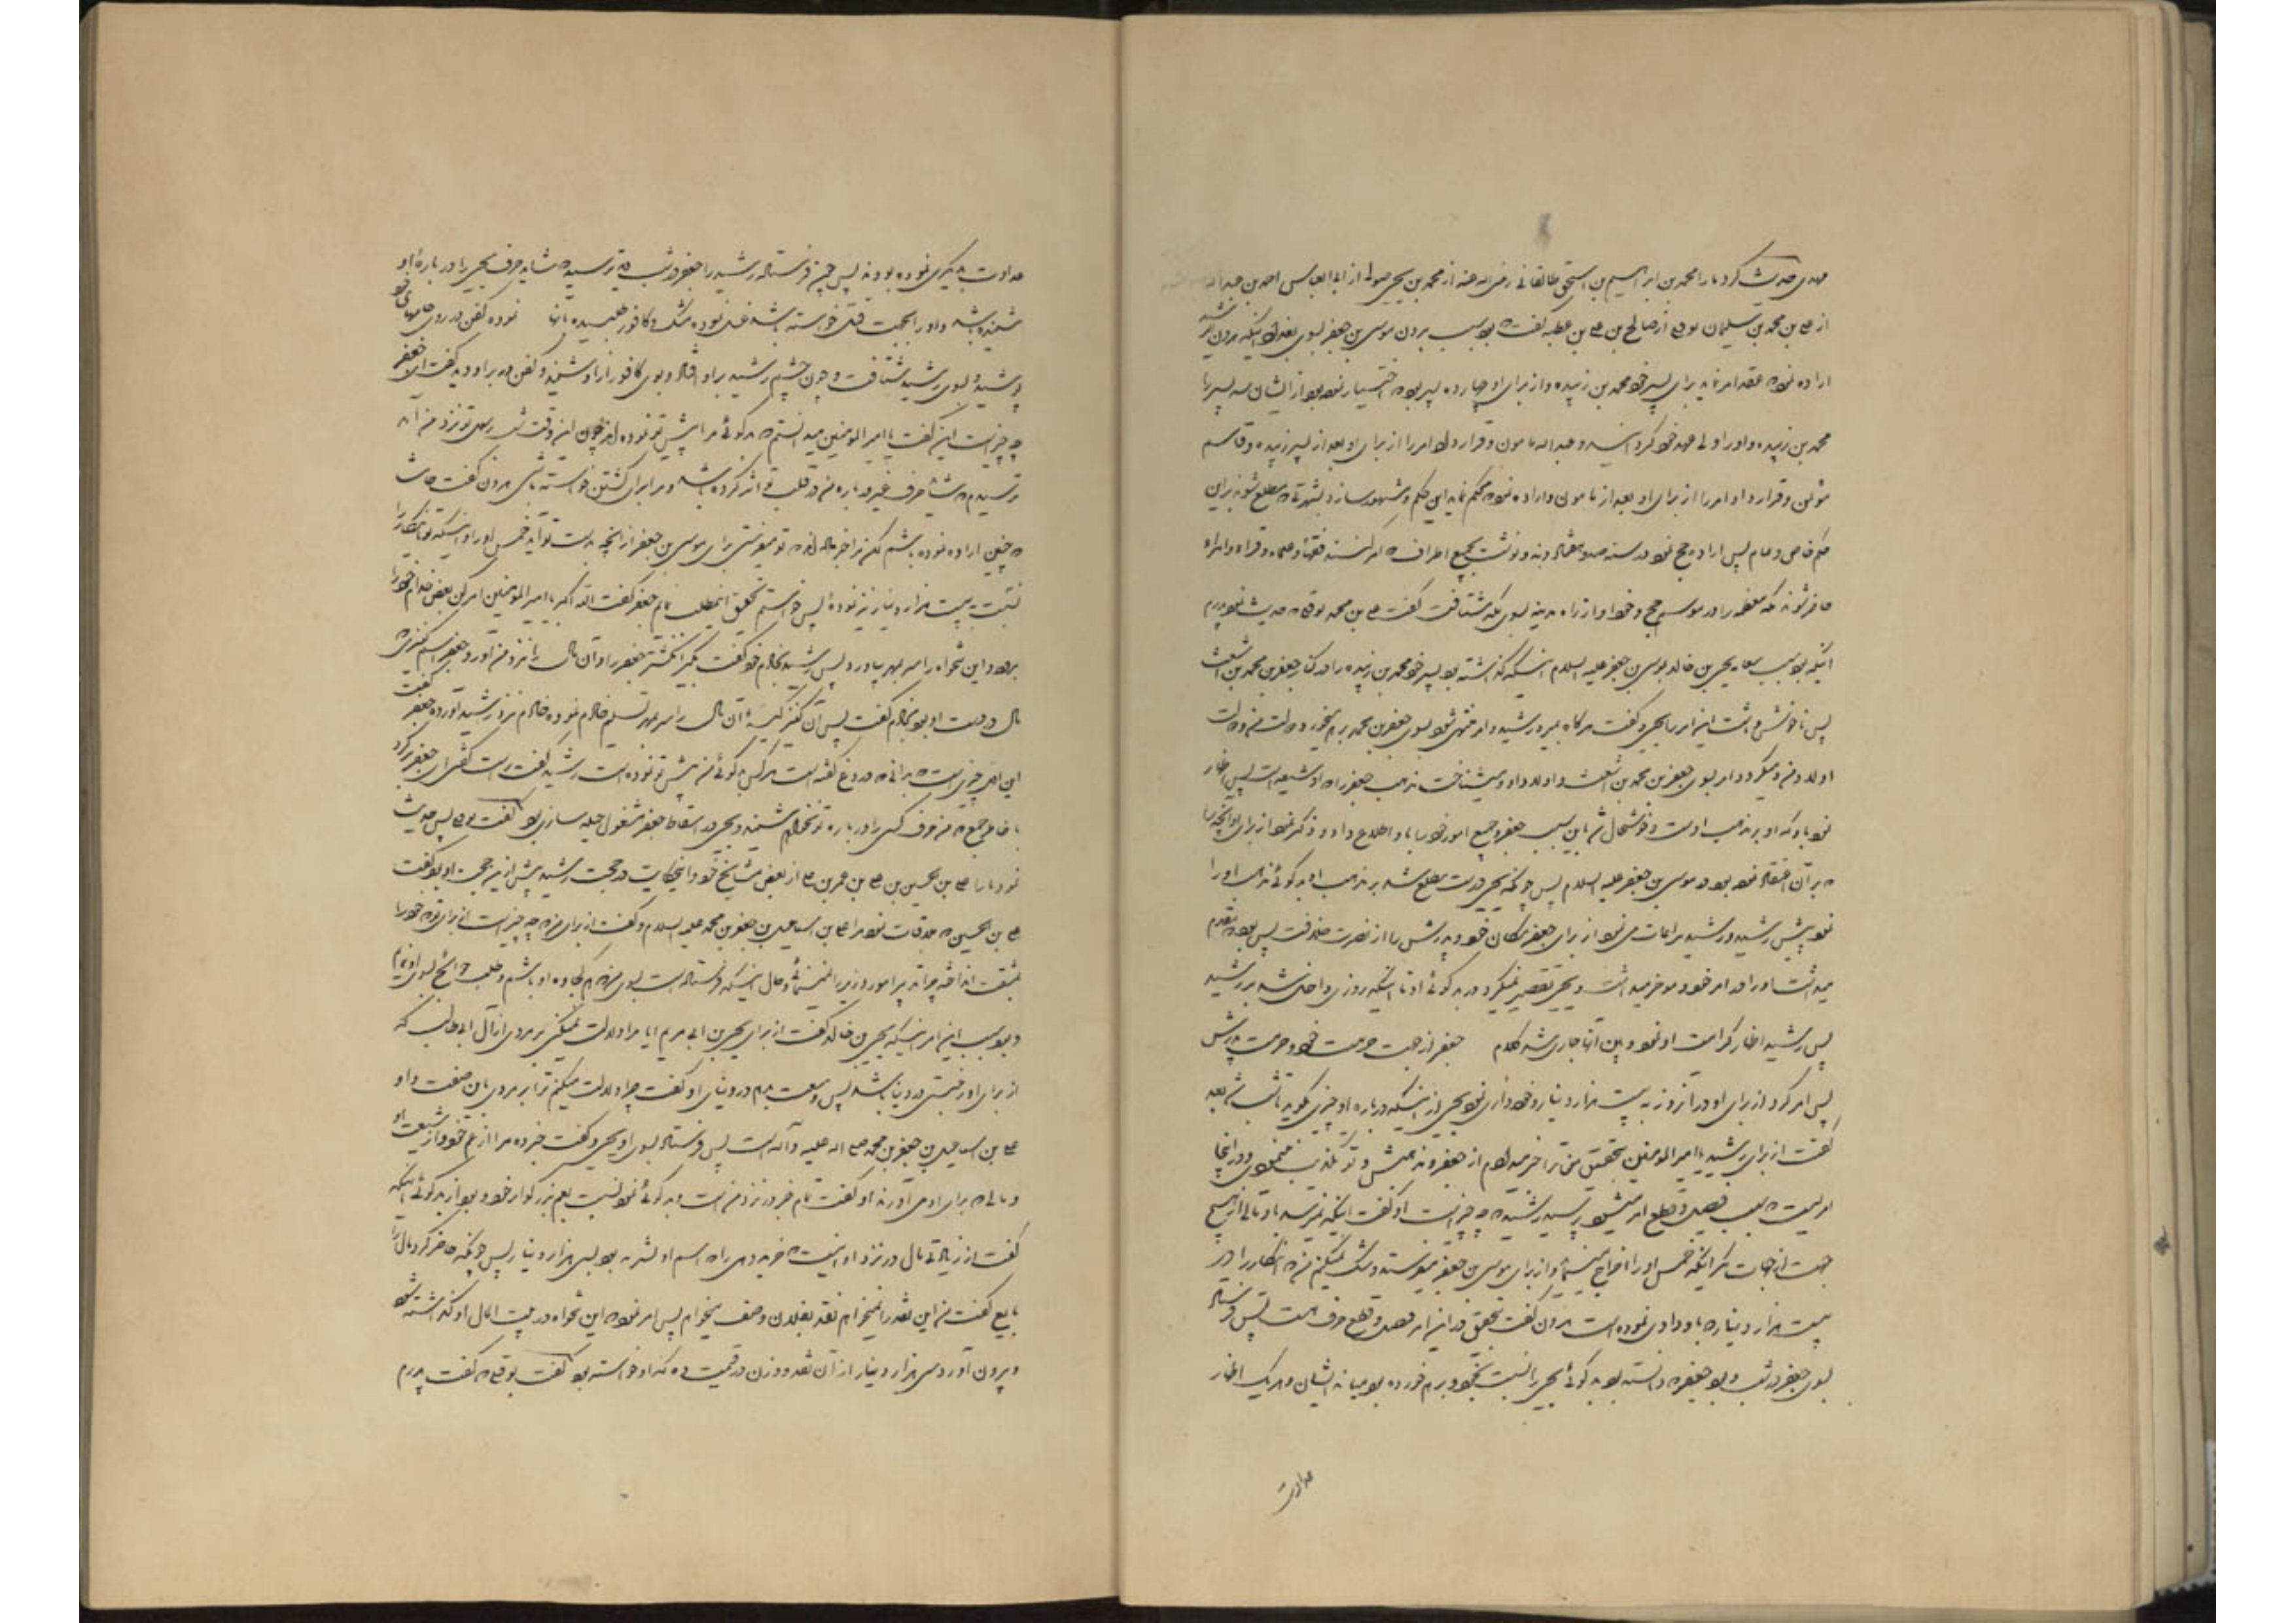 مهدی حدیث کرد ما را محمد بن ابراهیم بن اسحق طالقانی رضی الله عنه از محمد بن یحیی صولی از ابی العباس احمد بن عبدالله
از علی بن محمد بن سلیمان نوفلی از صالح بن علی بن عطیه گفت که بود سبب بردن موسی بن جعفر بسوی بغداد اینکه هرون الرشید
اراده نمود که عقد امر نماید برای پسر خود محمد بن زبیده و از برای او چهارده پسر بود که اختیار نموده بود از ایشان سه پسر را
محمد بن زبیده و او را ولی عهد خود گردانید و عبدالله مامون و قرار داد امر را از برای او بعد از پسر زبیده و قاسم
موتمن و قرار داد امر را از برای او بعد از مامون و اراده نمود که محکم نماید این حکم و مشهور سازد بشهرتی که مطلع شوند بر این
حکم خاص و عام پس اراده حج نمود در سنه صد و هفتاد و نه و نوشت بجمیع اطراف که امر است فقها و علماء و قراء و امراء
حاضر شوند مکه معظمه را در موسم حج و خود او از راه مدینه بسوی مکه شتافت گفت علی بن محمد نوفلی که حدیث نمود پدرم
اینکه بود سبب سعایه یحیی بن خالد بموسی بن جعفر علیه السلام اینکه گذاشته بود پسر خود محمد بن زبیده را در کنار جعفر بن محمد بن اشعث
پس ناخوش داشت این امر را یحیی و گفت هرگاه بمیرد رشید و امر منتهی شود بسوی محمد برهم میخورد دولت من و دولت
اولاد من و میگردد امر بسوی جعفر بن محمد بن اشعث و اولاد او و میشناخت مذهب جعفر را که او شیعه است پس اظهار
نمود باو که او بر مذهب اوست و خوشحال شد باین سبب جعفر و جمیع امور خود را باو اطلاع داد و ذکر نمود از برای او آنچه را
که بر آن اعتقاد نموده بود در موسی بن جعفر علیه السلام پس چونکه یحیی درست مطلع شد بر مذهب او بدگوئی مذهب او را
نمود پیش رشید و رشید مراعات می نمود از برای جعفر مکان خود و پدرش را از نصرت خلافت پس بود که مقدم
میداشت او را در امر خود و موخر میداشت و یحیی تقصیر نمیکرد در بدگوئی او تا اینکه روزی داخل شد بر رشید
پس رشید اظهار کرامت او نمود و بین آنها جاری شد کلام جعفر از جهت حرمت خود و حرمت پدرش
پس امر کرد از برای او در آنروز به بیست هزار دینار و خودداری نمود یحیی از اینکه درباره او چیزی بگوید تا شب شد بعد
گفت از برای رشید یا امیر المومنین بتحقیق من ترا خبر میدادم از جعفر و مذهبش و تو تکذیب مینمودی و در اینجا
امریست که سبب فیصل و قطع امر میشود پرسید رشید که چه چیز است او گفت اینکه نمیرسد باو مالی از هیچ
جهت از جهات مگر اینکه خمس او را اخراج مینماید و از برای موسی بن جعفر میفرستد و شک نمیکنم من که اینکار را در
بیست هزار دینار که باو دادی نموده است هرون گفت بتحقیق در این امر فیصل و قطع حرف هست پس فرستاد
بسوی جعفر در شب و بود جعفر که دانسته بود بدگوئی یحیی را نسبت بخود و برهم خورده بود میانه ایشان و هریک اظهار
عداوت
عداوت دیگری نموده بودند پس چون فرستاده رشید را جعفر در شب دید ترسید که شاید حرف یحیی را درباره او
شنیده باشد و او را بجهت قتل خواسته باشد غسل نموده مشک و کافور طلبیده بآنها نموده کفن در روی جامهای خود
پوشیده بسوی رشید شتافت و چون چشم رشید بر او افتاد و بوی کافور از او شنید و کفن در بر او دید گفت ای جعفر
چه چیز است این گفت یا امیر المومنین میدانستم که بدگوئی مرا پیش تو نموده اند چون این وقت شب رسول تو نزد من آمد
ترسیدم که شاید حرف غیر درباره من در قلب تو اثر کرده باشد و مرا برای کشتن خواسته باشی هرون گفت حاشا
که چنین اراده نموده باشم لکن مرا خبر داده اند که تو میفرستی برای موسی بن جعفر از آنچه بدست تو آید خمس او را و اینکه تو اینکار را
نسبت به بیست هزار دینار نیز نموده پس خواستم تحقیق اینمطلب نمایم جعفر گفت الله اکبر یا امیر المومنین امر کن بعض خدام خود را
برود و این تنخواه را سر بمهر بیاورد پس رشید بخادم خود گفت بگیر انگشتر جعفر را و آن مال را نزد من آور و جعفر اسم کنیزی که
مال در دست او بود بخادم گفت پس آن کنیز کیسه آن مال را سر بمهر تسلیم خادم نموده خادم نزد رشید آورده جعفر گفت
این اول چیزی است که بدانی که دروغ گفته است هرکس بدگوئی من پیش تو نموده است رشید گفت راست گفتی ای جعفر برگرد
با خاطر جمع که من حرف کسی را درباره تو نخواهم شنید و یحیی در اسقاط جعفر مشغول حیله سازی بود گفت نوفلی پس حدیث
نمود ما را علی بن حسین بن علی بن عمر بن علی از بعض مشایخ خود و اینحکایت در حجت رشید پیش از این حجت او بود گفت
علی بن الحسین که ملاقات نمود مرا علی بن اسماعیل بن جعفر بن محمد علیه السلام و گفت از برای من که چه چیز است از برای تو که خود را
بمشقت انداخته چرا تدبیر امور وزیر را نمینمائی و حال اینکه فرستاده است بسوی من که هم کجاوه او باشم و طلب حوائج بسوی او نمایم
و بود سبب این امر اینکه یحیی بن خالد گفت از برای یحیی بن ابی مریم ایا مرا دلالت نمیکنی بر مردی از آل ابی طالب که
از برای او رغبتی در دنیا باشد پس وسعت بدهم در دنیای او گفت چرا دلالت میکنم ترا بر مردی باین صفت و او
علی بن اسماعیل بن جعفر بن محمد صلی الله علیه و آله است پس فرستاد بسوی او یحیی و گفت خبر ده مرا از عم خود و از شیعیان او
و مالی که برای او می آورند او گفت تمام خبر در نزد من است و بدگوئی نمود نسبت بعم بزرگوار خود و بود از بدگوئی اینکه
گفت از زیادتی مال در نزد او اینست که خرید دهی را که اسم او بشریه بود بسی هزار دینار پس چونکه حاضر کرد مال را
بایع گفت من این نقد را نمیخواهم نقد بفلان وصف میخواهم پس امر نمود که این تنخواه در بیت المال او گذاشته شود
و بیرون آورد سی هزار دینار از آن نقد و وزن در قیمت ده که او خواسته بود گفت نوفلی که گفت پدرم